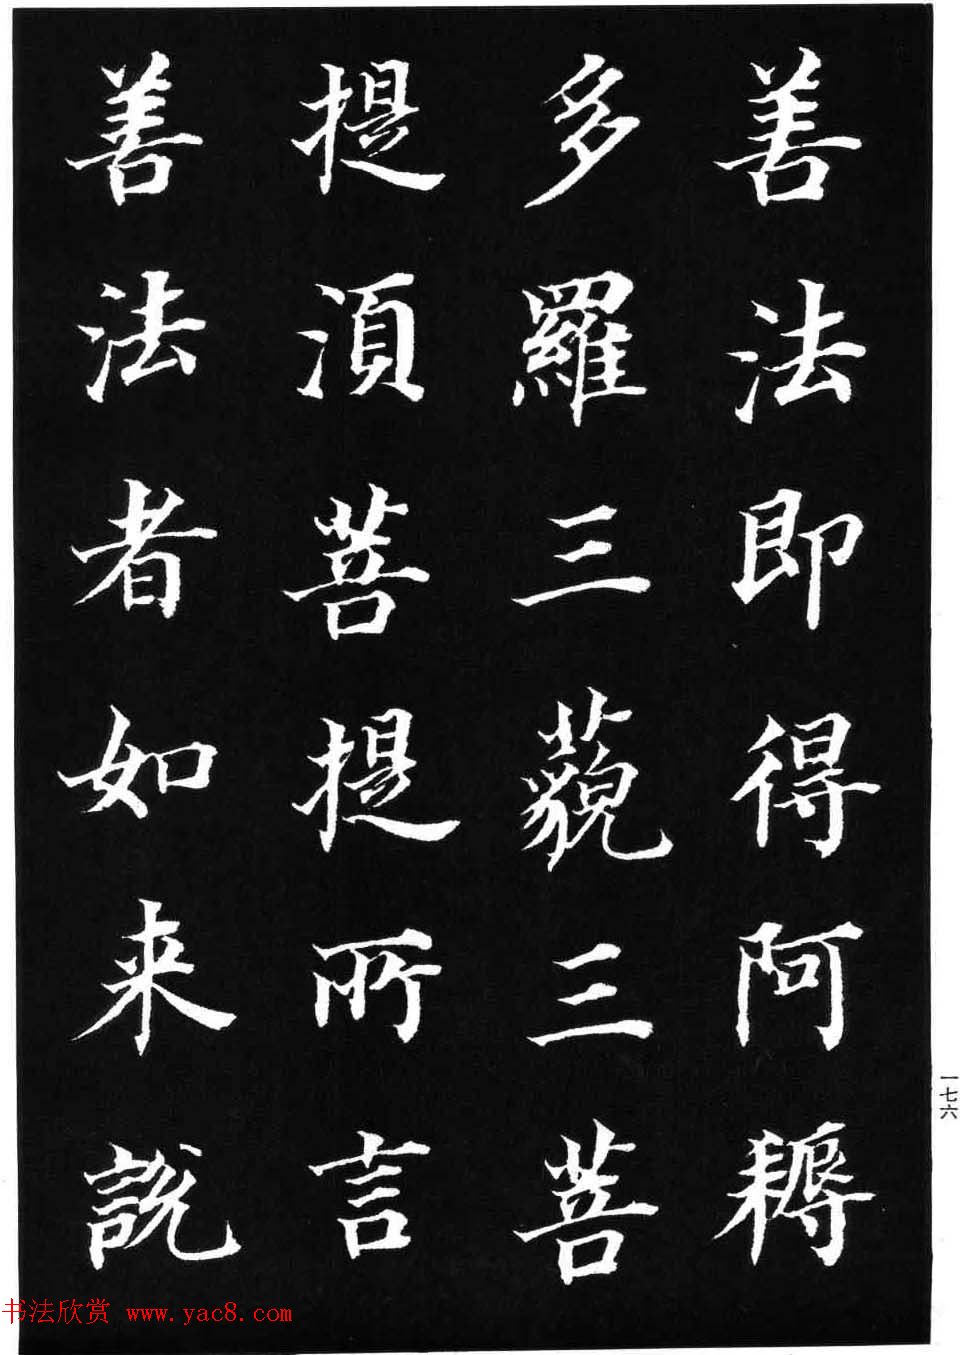 善法即得阿耨
多羅三藐三菩
提須菩提所言
善法者如来說
一七六
书法欣赏 www.yac8.com